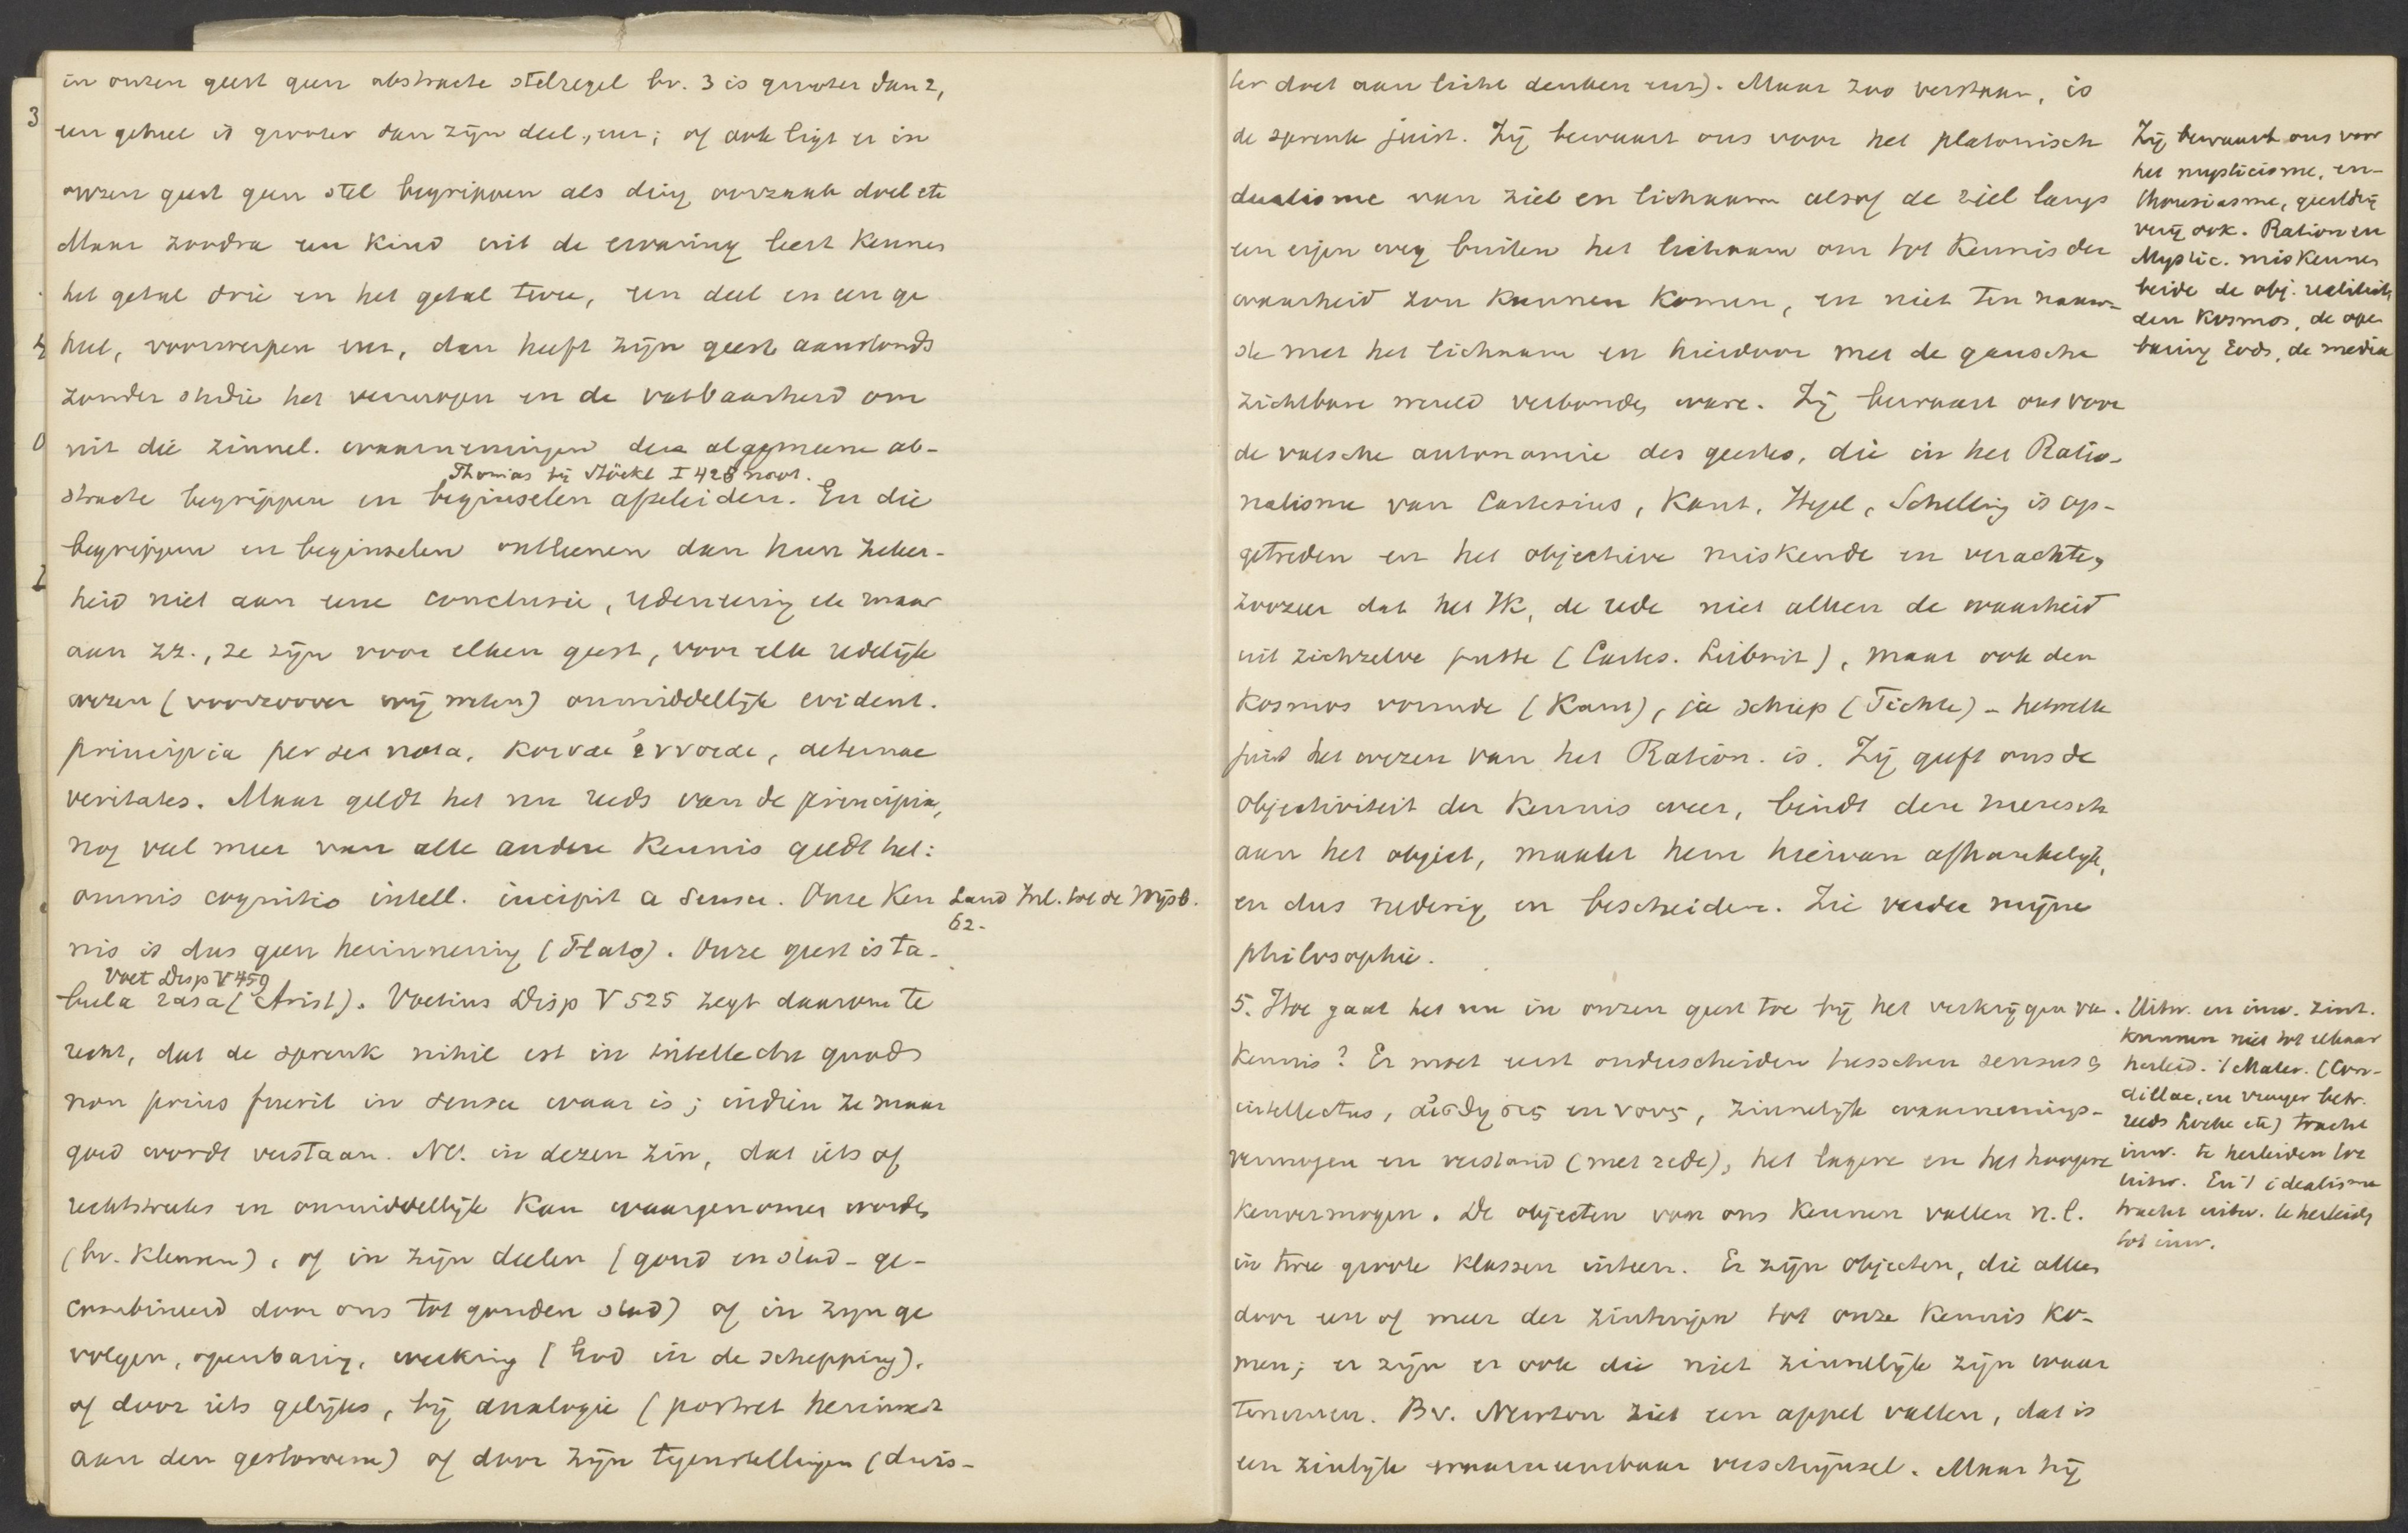 in onzen geest geen abstracte stelregel bv. 3 is grooter dan 2,
een geheel is grooter dan zijn deel, enz; of ook ligt er in
onzen geest geen stel begrippen als ding oorzaak doel etc
Maar zoodra een kind uit de ervaring leert kennen
het getal drie en het getal twee, een deel en een ge
heel, voorwerpen enz, dan heeft zijn geest aanstonds
zonder studie het vermogen en de vatbaarheid om
uit die zinnel. waarnemingen die algemeene ab-
Thomas bij Stöckl I 428 noot.
stracte begrippen en beginselen afteleiden. En die
begrippen en beginselen ontleenen dan hun zeker-
heid niet aan eene conclusie, redeneering etc maar
aan zz., ze zijn voor elken geest, voor elk redelijk
wezen (voorzoover wij weten) onmiddellijk evident.
principia per se nota, κοιναι ἐννοιαι, aeternae
veritates. Maar geldt het nu reeds van de principia,
nog veel meer van alle andere kennis geldt het:
omnis cognitio intell. incipit a sensu. Onze Ken
Land Inl. tot de Wijsb.
62.
nis is dus geen herinnering (Plato). Onze geest is ta-
Voet Disp V 459
bula rasa (Arist). Voetius Disp V 525 zegt daarom te
recht, dat de spreuk nihil est in intellectu quod
non prius fuerit in sensu waar is; indien ze maar
goed wordt verstaan. Nl. in dezen zin, dat iets of
rechtstreeks en onmiddellijk kan waargenomen worden
(bv. kleuren), of in zijn deelen (goud en stad - ge-
combineerd door ons tot gouden stad) of in zijn ge
volgen, openbaring, werking (God in de schepping).
of door iets gelijks, bij analogie (portret herinnert
aan den gestorvene) of door zijn tegenstellingen (duis-
ter doet aan licht denken enz). Maar zoo verstaan, is
de spreuk juist. Zij bewaart ons voor het platonisch
dualisme van ziel en lichaam alsof de ziel langs
een eigen weg buiten het lichaam om tot kennis der
waarheid zou kunnen komen, en niet ten nauw-
ste met het lichaam en hierdoor met de gansche
zichtbare wereld verbonden ware. Zij bewaart ons voor
de valsche autonomie des geestes, die in het Ratio-
nalisme van Cartesius, Kant, Hegel, Schelling is op-
getreden en het objectieve miskende en verachtte,
zoozeer dat het Ik, de rede niet alleen de waarheid
uit zichzelve putte (Cartes. Leibnit), maar ook den
kosmos vormde (Kant), ja schiep (Fichte) - hetwelk
juist het wezen van het Ration. is. Zij geeft ons de
objectiviteit der kennis weer, bindt den mensch
aan het object, maakt hem hiervan afhankelijk,
en dus nederig en bescheiden. Zie verder mijne
philosophie.
Zij bewaart ons voor
het mysticisme, en-
thousiasme, geestdrij
verij ook. Ration en
Mystic. miskennen
beide de obj. realiteit
den kosmos, de ope
baring Gods, de media
5. Hoe gaat het nu in onzen geest toe bij het verkrijgen van
kennis? Er moet eerst onderscheiden tusschen sensus en
intellectus, αἰσθησις en νους, zinnelijk waarnemings-
vermogen en verstand (met rede), het lagere en het hoogere
kenvermogen. De objecten van ons kennen vallen n.l.
in twee groote klassen uiteen. Er zijn objecten, die alleen
door een of meer der zintuigen tot onze kennis ko-
men; er zijn er ook die niet zinnelijk zijn waar
tenemen. Bv. Newton ziet een appel vallen, dat is
een zinlijk waarneembaar verschijnsel. Maar hij
Uitw. en inw. zint.
kunnen niet tot elkaar
herleid. 't Mater. (Con-
dillac, en vroeger betr.
reeds Locke etc) tracht
inw. te herleiden tot
uitw. En 't idealisme
tracht uitw. te herleiden
tot inw.